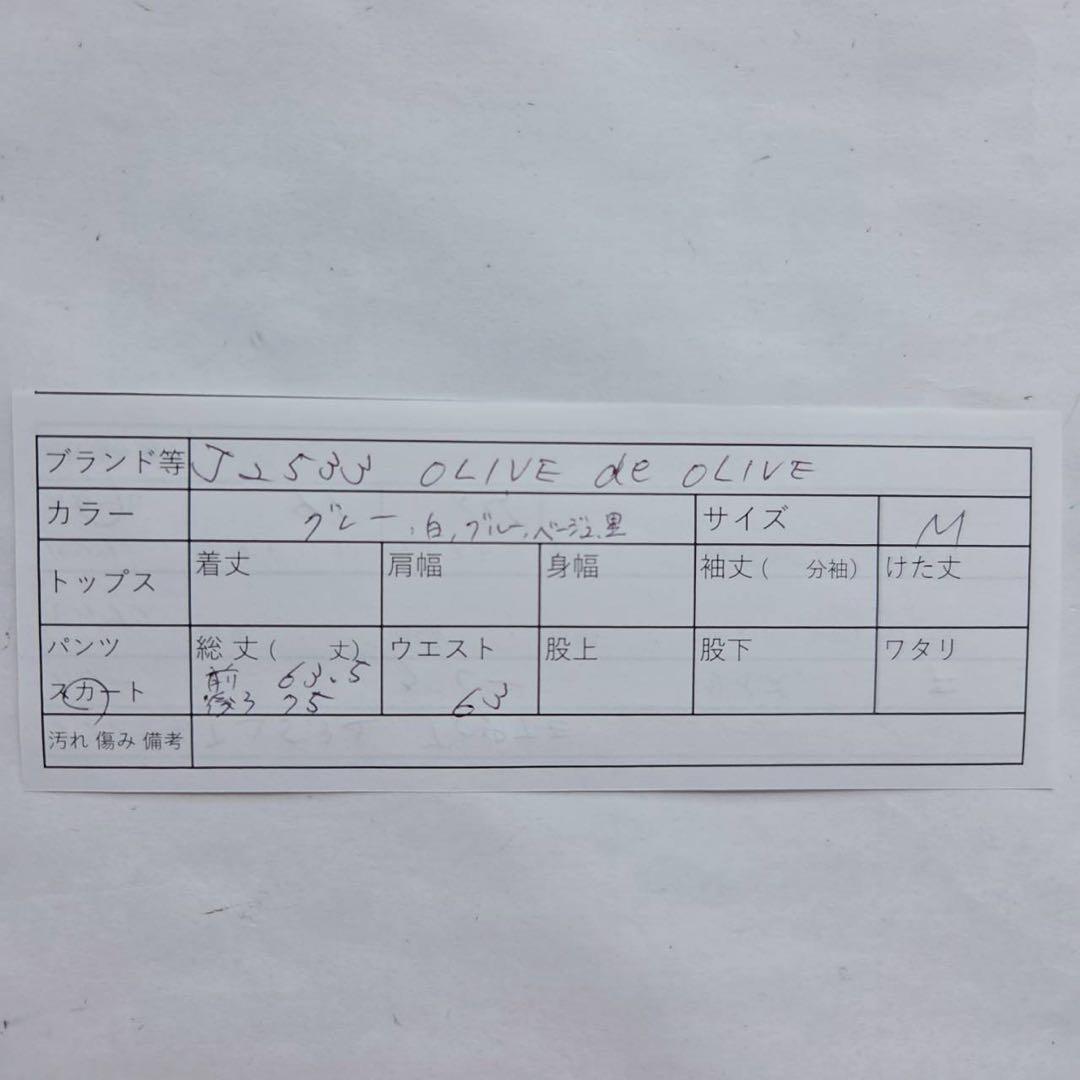 ブランド等 J2533 OLIVE de OLIVE
カラー グレー、白、ブルー、ベージュ、黒 サイズ M
トップス 着丈 肩幅 身幅 袖丈( 分袖) けた丈
パンツ 総丈( 丈) ウエスト 股上 股下 ワタリ
前 63.5
スカート 後ろ 75 63
汚れ 傷み 備考